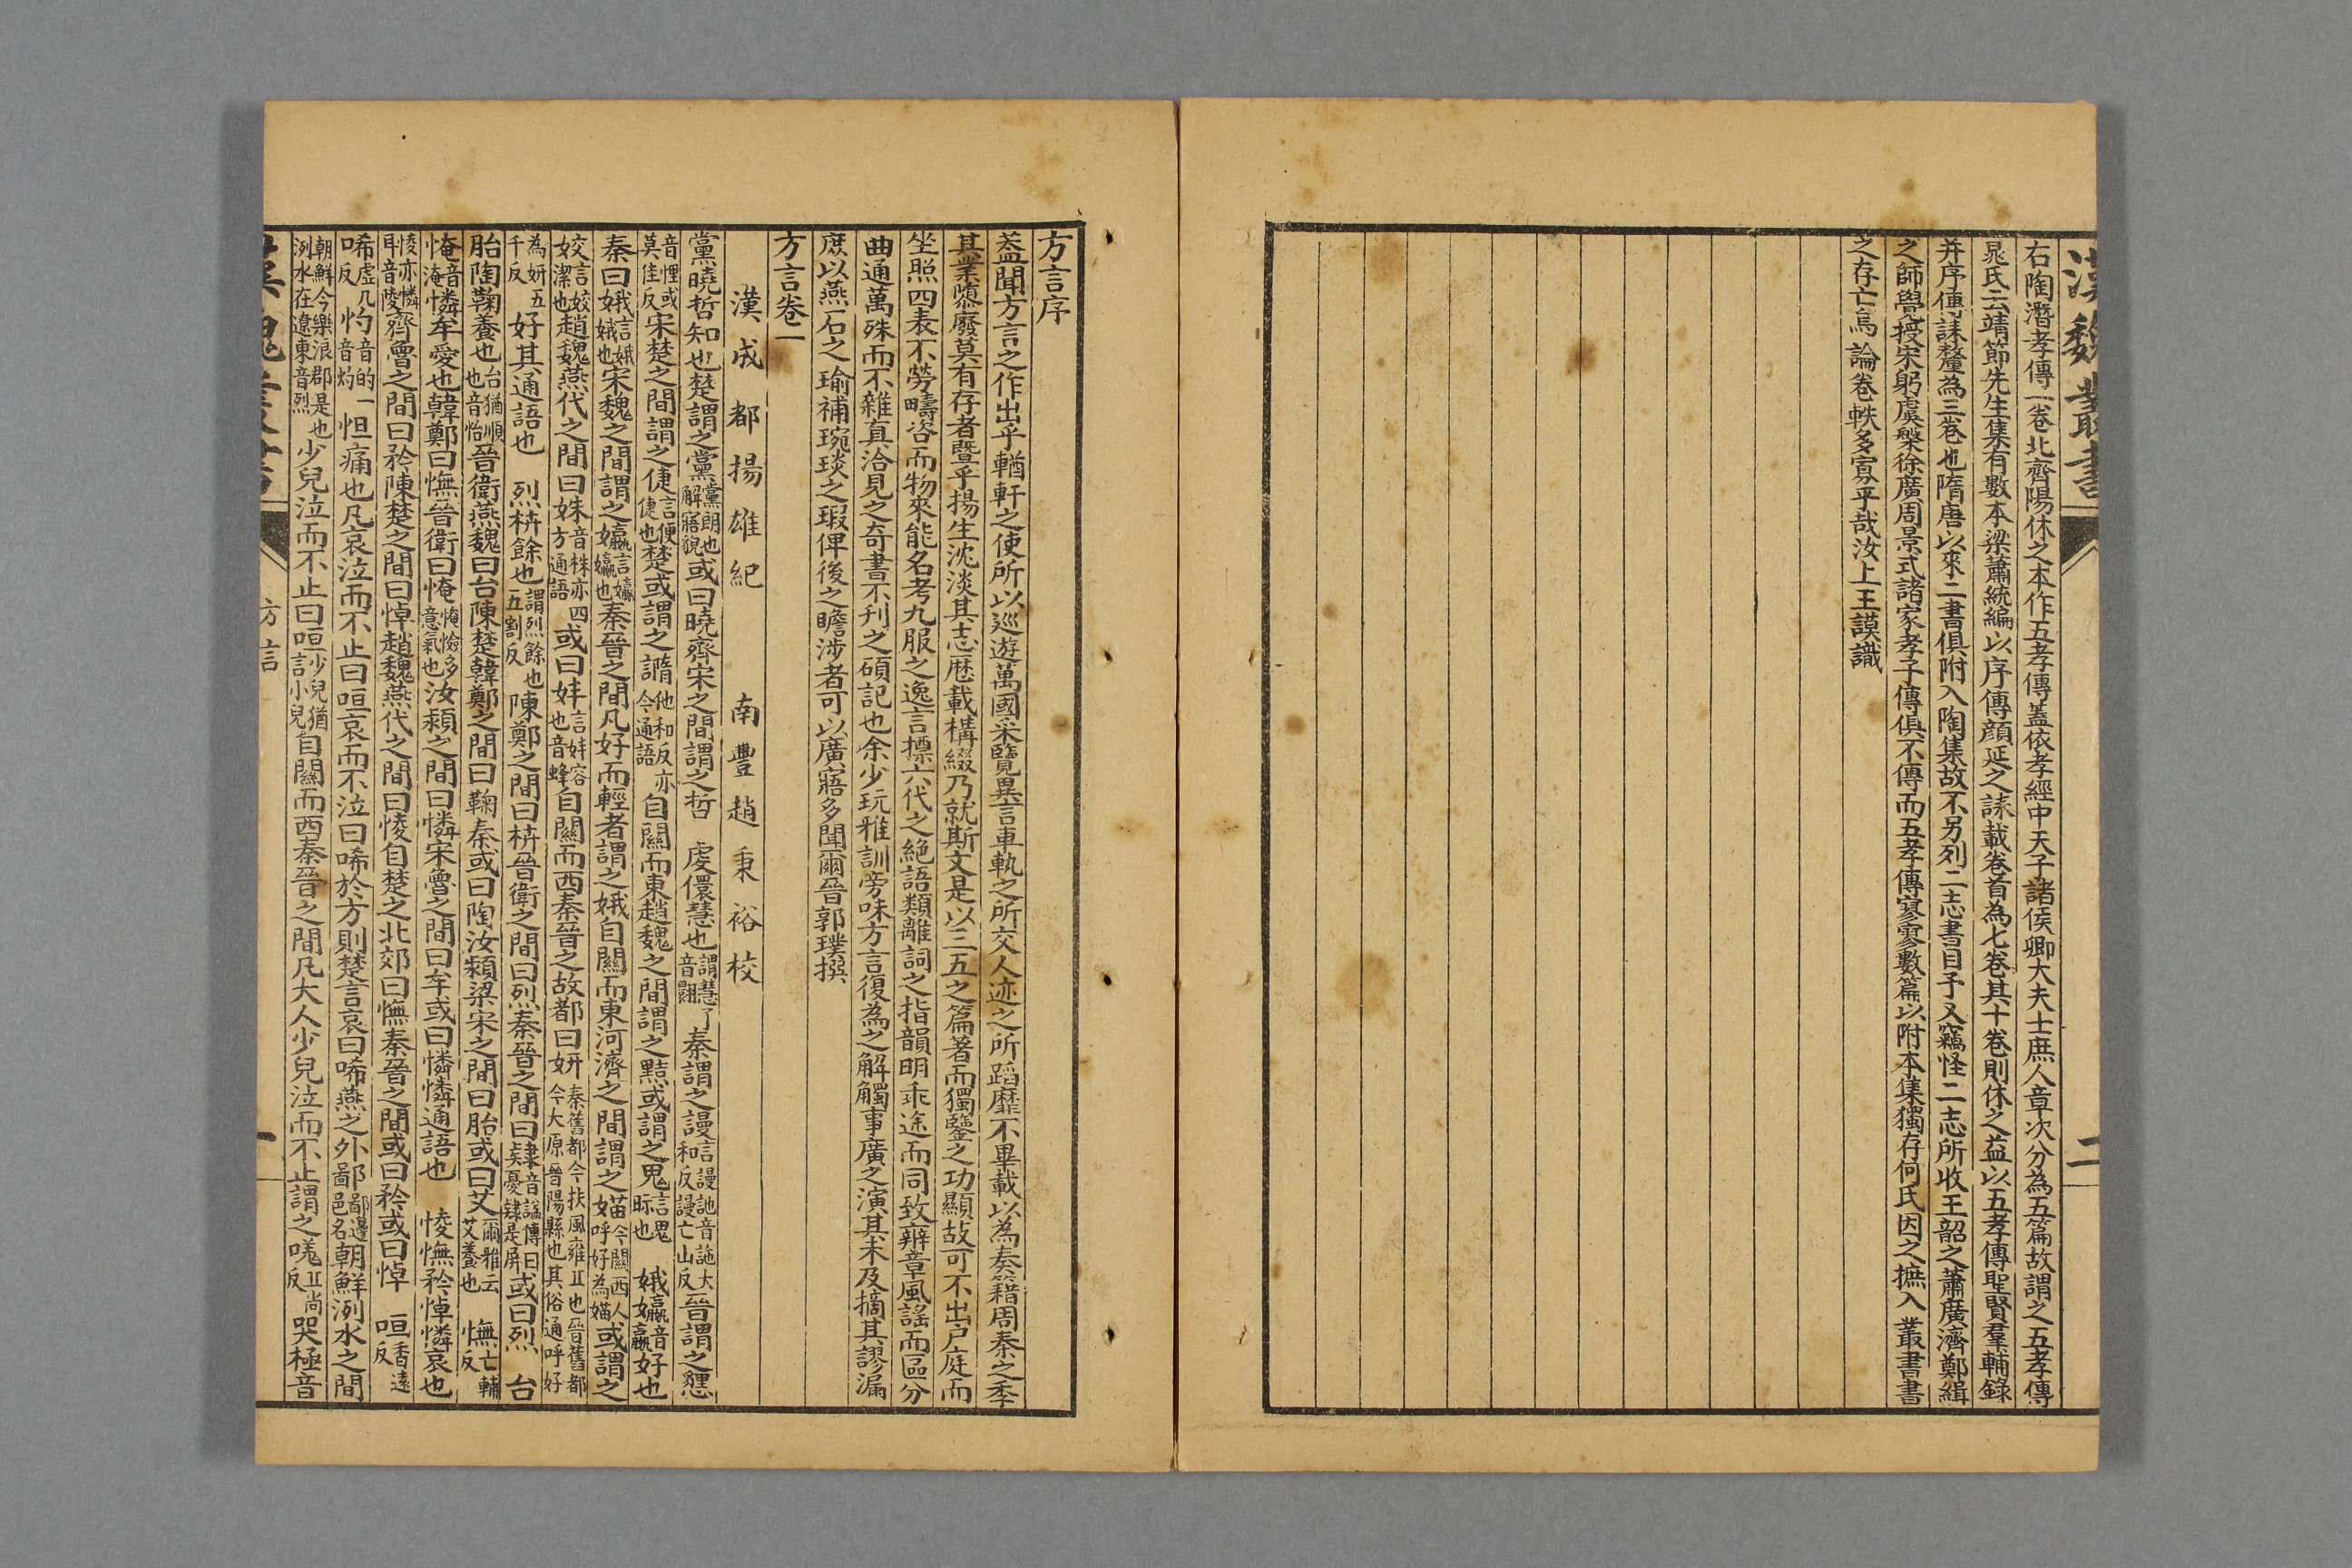 右陶潛孝傳一卷北齊陽休之本作五孝傳蓋依孝經中天子諸侯卿大夫士庶人章次分為五篇故謂之五孝傳
晁氏云靖節先生集有數本梁蕭統編以序傳顏延之誄載卷首為七卷其十卷則休之益以五孝傳聖賢羣輔錄
并序傳誄釐為三卷也隋唐以來二書俱附入陶集故不另列二志書目予又竊怪二志所收王韶之蕭廣濟鄭緝
之師覺授宋躬虞槃徐廣周景式諸家孝子傳俱不傳而五孝傳寥寥數篇以附本集獨存何氏因之摭入叢書書
之存亡烏論卷帙多寡乎哉汝上王謨識
漢魏叢書
二
方言序
蓋聞方言之作出乎輶軒之使所以巡遊萬國采覽異言車軌之所交人迹之所蹈靡不畢載以為奏籍周秦之季
其業隳廢莫有存者曁乎揚生沈淡其志歷載構綴乃就斯文是以三五之篇著而獨鑒之功顯故可不出戶庭而
坐照四表不勞疇咨而物來能名考九服之逸言摽六代之絕語類離詞之指韻明乖途而同致辨章風謠而區分
曲通萬殊而不雜真洽見之奇書不刊之碩記也余少玩雅訓旁味方言復為之解觸事廣之演其未及摘其謬漏
庶以燕石之瑜補琬琰之瑕俾後之瞻涉者可以廣寤多聞爾晉郭璞撰
方言卷一
漢成都揚雄紀 南豐趙秉裕校
黨曉哲知也楚謂之黨黨朗也解寤貌或曰曉齊宋之間謂之哲 虔儇慧也謂慧了音翾秦謂之謾言謾訑音訑大和反謾亡山反晉謂之𢠢
音悝或莫佳反宋楚之間謂之倢言便倢也楚或謂之䜏他和反亦今通語自關而東趙魏之間謂之黠或謂之鬼言鬼眎也 娥㜲音㜲好也
秦曰娥言娥娥也宋魏之間謂之㜲言㜲㜲也秦晉之間凡好而輕者謂之娥自關而東河濟之間謂之媌今關西人呼好為媌或謂之
姣言姣潔也趙魏燕代之間曰姝音株亦四方通語或曰妦言妦容也音蜂自關而西秦晉之故都曰妍秦舊都今扶風雍丘也晉舊都今大原晉陽縣也其俗通呼好
為妍五千反好其通語也 烈枿餘也謂烈餘也五割反陳鄭之間曰枿晉衛之間曰烈秦晉之間曰肄音謚傳曰夏肄是屏或曰烈 台
胎陶鞠養也台猶頤也音怡晉衛燕魏曰台陳楚韓鄭之間曰鞠秦或曰陶汝潁梁宋之間曰胎或曰艾爾雅云艾養也 憮亡輔反
㤿音淹憐牟愛也韓鄭曰憮晉衛曰㤿㤿㥓多意氣也汝潁之間曰憐宋魯之間曰牟或曰憐憐通語也 㥄憮矜悼憐哀也
㥄亦憐耳音陵齊魯之間曰矜陳楚之間曰悼趙魏燕代之間曰㥄自楚之北郊曰憮秦晉之間或曰矜或曰悼 咺香遠反
唏虛几反㣿音的一音灼怛痛也凡哀泣而不止曰咺哀而不泣曰唏於方則楚言哀曰唏燕之外鄙鄙邊邑名朝鮮洌水之間
朝鮮今樂浪郡是也洌水在遼東音烈少兒泣而不止曰咺少兒猶言小兒自關而西秦晉之間凡大人少兒泣而不止謂之嗴丘尚反哭極音
方言
一